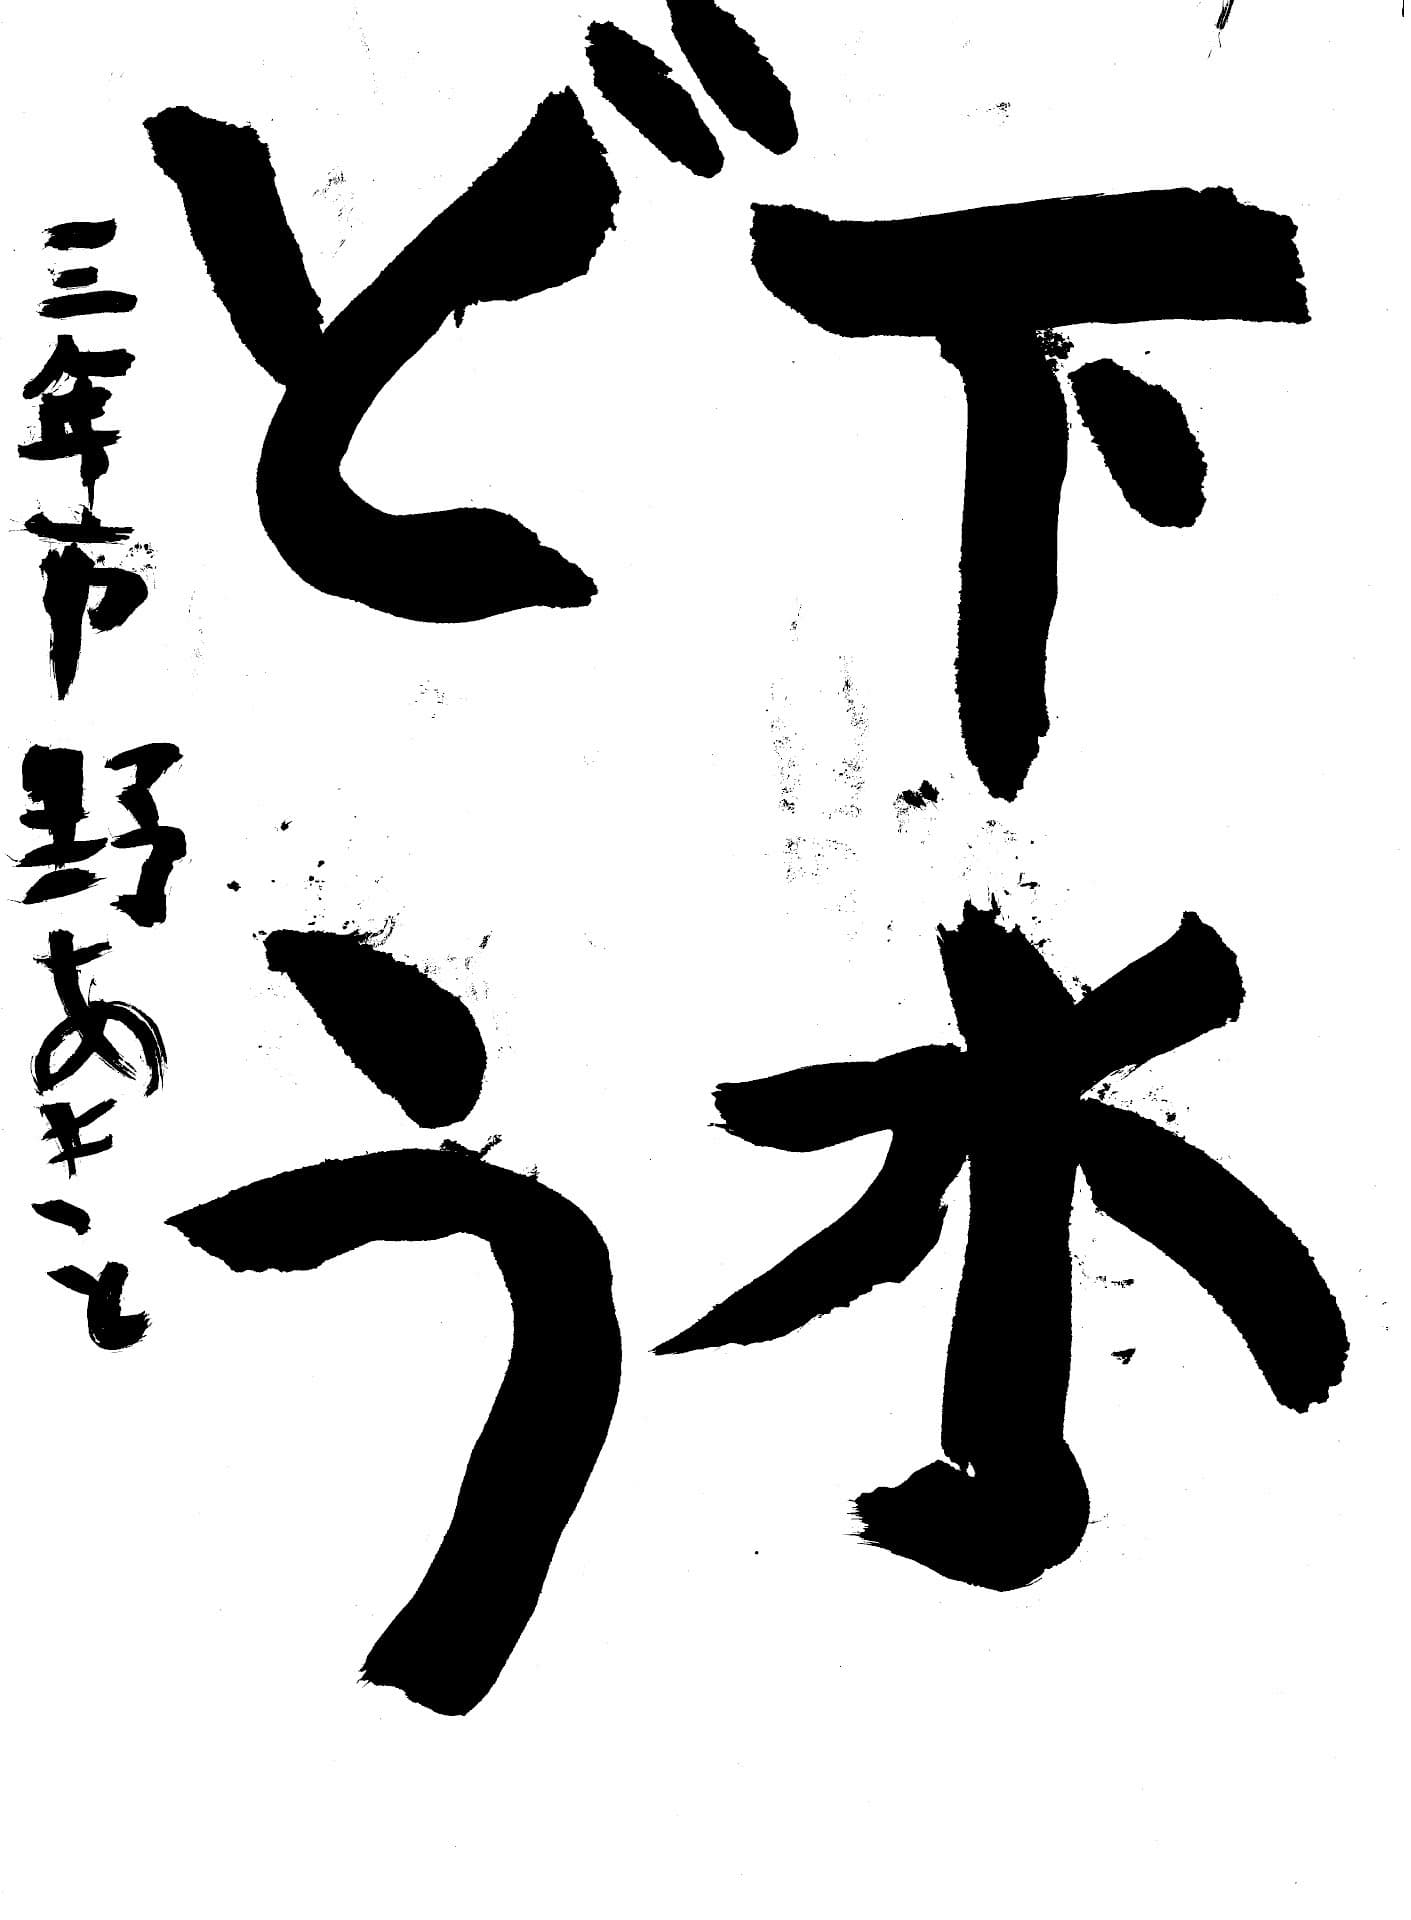 下水
どう
三年市野あきと